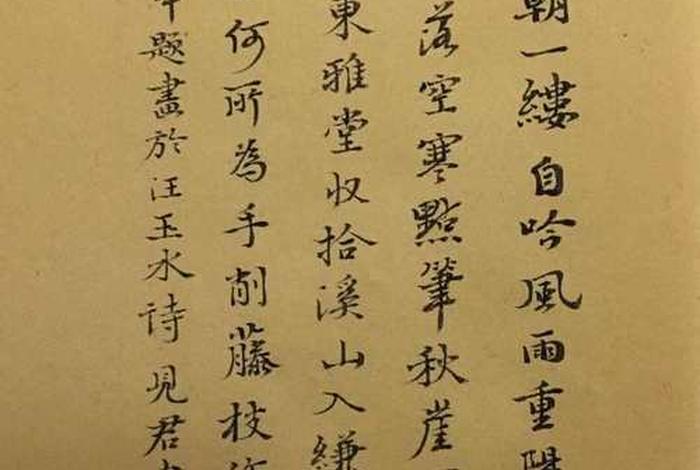 朝一縷自吟風雨重陽
落空寒點筆秋崖
東雅堂收拾溪山入縑
何所為手削藤枝
題畫於汪玉水詩見君